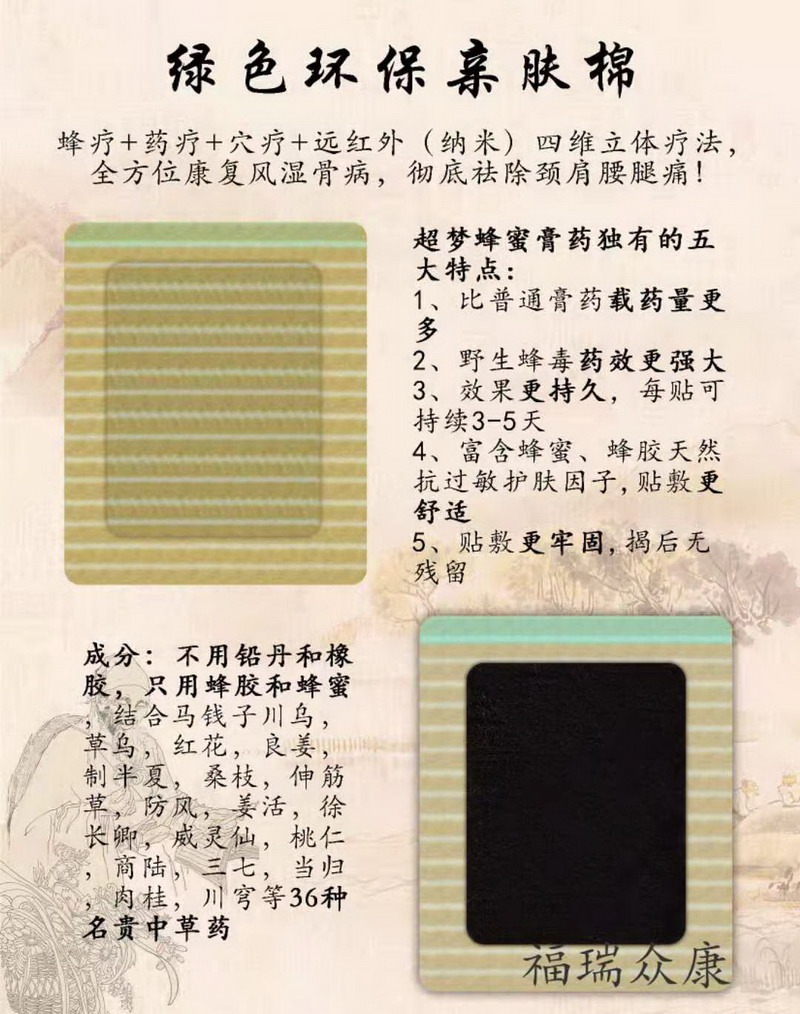 绿色环保亲肤棉
蜂疗+药疗+穴疗+远红外（纳米）四维立体疗法，
全方位康复风湿骨病，彻底祛除颈肩腰腿痛！
超梦蜂蜜膏药独有的五
大特点：
1、比普通膏药载药量更
多
2、野生蜂毒药效更强大
3、效果更持久，每贴可
持续3-5天
4、富含蜂蜜、蜂胶天然
抗过敏护肤因子,贴敷更
舒适
5、贴敷更牢固,揭后无
残留
成分：不用铅丹和橡
胶，只用蜂胶和蜂蜜
，结合马钱子川乌，
草乌，红花，良姜，
制半夏，桑枝，伸筋
草，防风，姜活，徐
长卿，威灵仙，桃仁
，商陆，三七，当归
，肉桂，川穹等36种
名贵中草药
福瑞众康